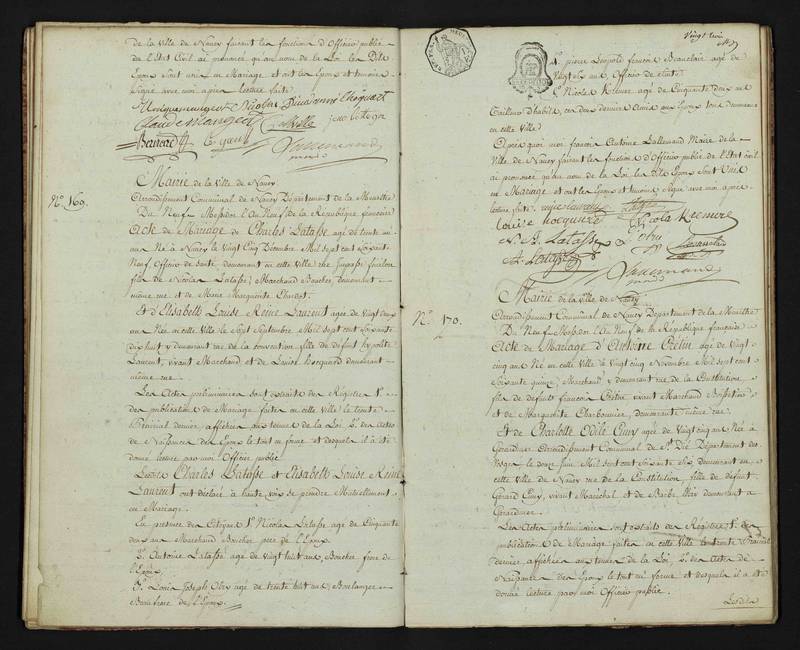 de la ville de Nancy faisant les fonctions d'Officier public
de l'Etat Civil ai prononcé qu'au nom de la Loi les Dits
Epoux sont unis en Mariage et ont les Epoux et temoins
signé avec moi après lecture faite
Mairie de la Ville de Nancy
N.° 169.
Arrondissement Communal de Nancy Département de la Meurthe
Du Neuf Messidor l'An Neuf de la République française
Acte de Mariage de Charles Latasse agé de trente un
ans Né à Nancy le Vingt Cinq Décembre Mil sept cent soixante
Neuf, Officier de santé, demeurant en cette Ville rue
fils de Nicolas Latasse, Marchand Boucher, demeurant
même rue et de Marie Marguerite
Et d'Elisabeth Louise Reine Laurent agée de Vingt deux
ans Née en cette Ville le Sept Septembre Mil sept cent soixante
dix huit y demeurant rue de la Convention, fille du défunt hypolite
Laurent, vivant Marchand et de Louise Hocquard demeurant
même rue
Les Actes préliminaires sont extraits des Registres 1°.
des publications de Mariage faites en cette Ville le trente
Prairial dernier, affichés aux termes de la Loi 2°. des Actes
de Naissances des Epoux le tout en forme et desquels il a été
donné lecture par moi Officier public
Lesdits Charles Latasse et Elisabeth Louise Reine
Laurent ont déclaré à haute voix se prendre Mutuellement
en Mariage.
En présence des Citoyens 1°. Nicolas Latasse agé de Cinquante
deux ans Marchand Boucher père de l'Epoux
2°. Antoine Latasse agé de Vingt huit ans, Boucher frère de
l'Epoux
3°. Louis Joseph Obry agé de trente huit ans, Boulanger
Beau frère de l'Epoux
Vingt trois
4°. pierre Léopold françois Beauclair agé de
Vingt six ans Officier de santé
Nicole agé de Cinquante deux ans
Tailleur d'habits, ces deux derniers Amis des Epoux tous demeurant
en cette Ville
Après quoi moi françois Antoine Lallemand Maire de la
Ville de Nancy faisant les fonctions d'Officier public de l'Etat civil
ai prononcé qu'au nom de la Loi les Dits Epoux sont Unis
en Mariage et ont les Epoux et temoins signé avec moi après
lecture faite
A. Latasse
Mairie de la Ville de Nancy
N.° 170.
Arrondissement Communal de Nancy Département de la Meurthe
Du Neuf Messidor l'An Neuf de la République française
Acte de Mariage d'Antoine agé de Vingt
cinq ans Né en cette Ville le Vingt cinq Novembre Mil sept cent
soixante quinze, Marchand y demeurant rue de la Constitution,
fils de défunts françois vivant Marchand
et de Marguerite Charbonnier, demeurant même rue
Et de Charlotte Odile Cuny agée de Vingt cinq ans Née à
Gérardmer Arrondissement Communal de St. Dié Département des
Vosges le douze juin Mil sept cent soixante seize demeurant en
cette Ville de Nancy rue de la Constitution, fille de défunt
Gérard Cuny, vivant Maréchal et de Barbe demeurant à
Gérardmer
Les Actes préliminaires sont extraits des Registres 1°. des
publications de Mariage faites en cette Ville le trente Prairial
dernier, affichés aux termes de la Loi 2°. des Actes de
Naissances des Epoux le tout en forme et desquels il a été
donné lecture par moi Officier public.
Lesdits